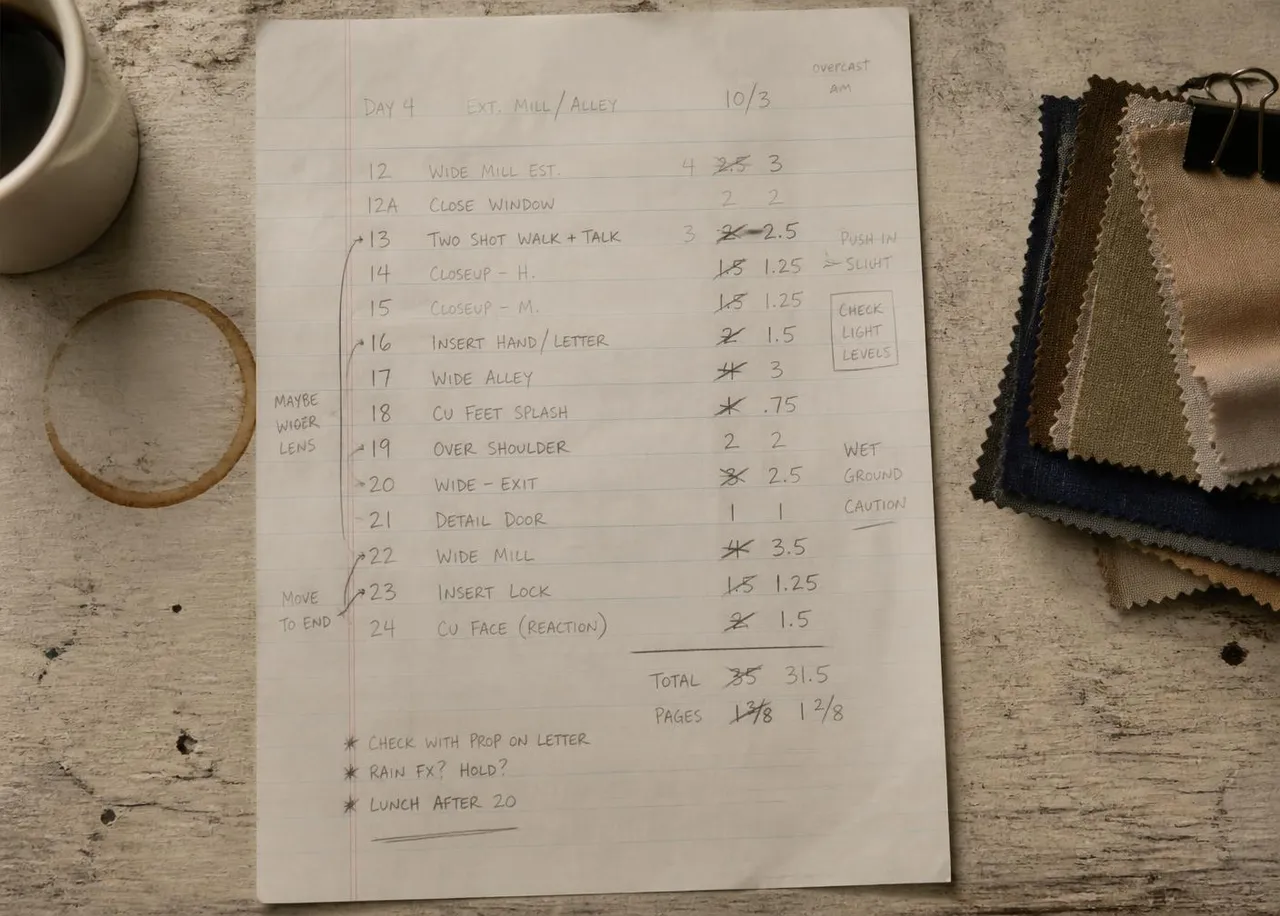 OVERCAST
AM
DAY 4 EXT. MILL/ALLEY 10/3
12 WIDE MILL EST. 4 2.5 3
12A CLOSE WINDOW 2 2
13 TWO SHOT WALK + TALK 3 2 2.5
PUSH IN
SLIGHT
14 CLOSEUP – H. 1.5 1.25
15 CLOSEUP – M. 1.5 1.25
CHECK
LIGHT
LEVELS
16 INSERT HAND/LETTER 2 1.5
17 WIDE ALLEY 4 3
MAYBE
WIDER
LENS
18 CU FEET SPLASH .75
19 OVER SHOULDER 2 2
20 WIDE – EXIT 3 2.5
WET
GROUND
CAUTION
21 DETAIL DOOR 1 1
22 WIDE MILL 4 3.5
23 INSERT LOCK 1.5 1.25
MOVE
TO END
24 CU FACE (REACTION) 2 1.5
TOTAL 35 31.5
PAGES 1 3/8 1 2/8
* CHECK WITH PROP ON LETTER
* RAIN FX? HOLD?
* LUNCH AFTER 20